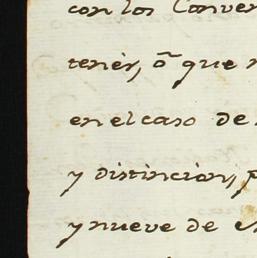 con los Conven
tener, ó que
en el caso de
y distincion,
y nueve de